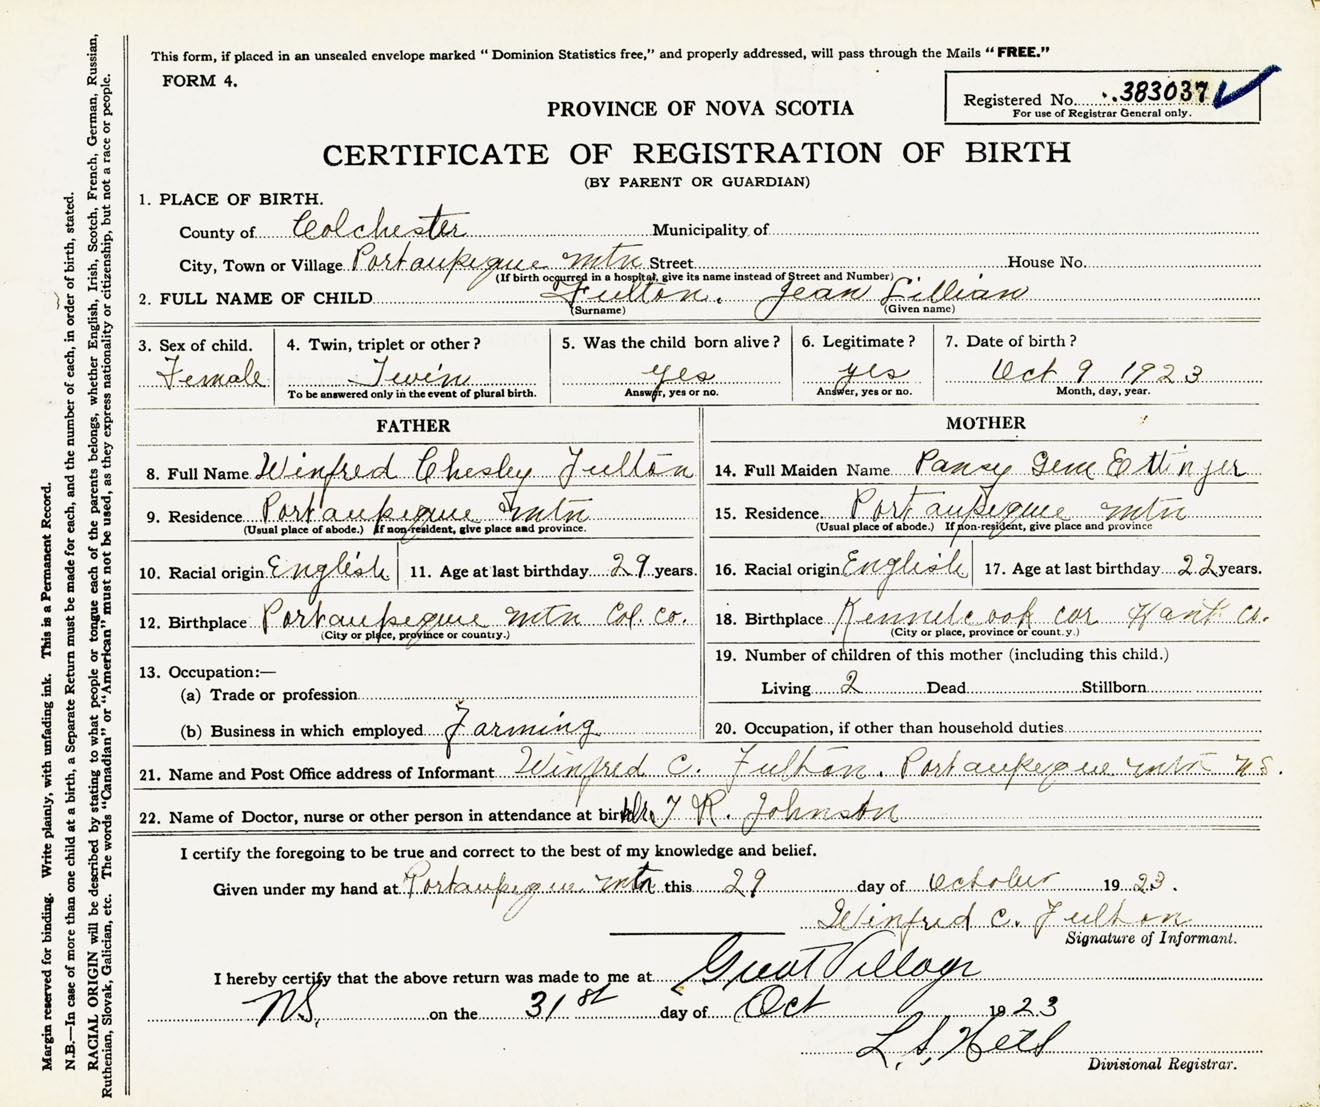 This form, if placed in an unsealed envelope marked "Dominion Statistics free," and properly addressed, will pass through the Mails "FREE."
FORM 4.
Registered No. 383037
For use of Registrar General only.
PROVINCE OF NOVA SCOTIA
CERTIFICATE OF REGISTRATION OF BIRTH
(BY PARENT OR GUARDIAN)
1. PLACE OF BIRTH.
County of Colchester Municipality of
City, Town or Village Portaupique Mtn Street House No.
(If birth occurred in a hospital, give its name instead of Street and Number)
2. FULL NAME OF CHILD Fulton, Jean Lillian
(Surname) (Given name)
3. Sex of child. 4. Twin, triplet or other? 5. Was the child born alive? 6. Legitimate? 7. Date of birth?
Female Twin yes yes Oct 9 1923
To be answered only in the event of plural birth. Answer, yes or no. Answer, yes or no. Month, day, year.
FATHER MOTHER
8. Full Name Winfred Chesley Fulton 14. Full Maiden Name Pansy Gem Ettinger
9. Residence Portaupique Mtn 15. Residence. Portaupique Mtn
(Usual place of abode.) If non-resident, give place and province. (Usual place of abode.) If non-resident, give place and province
10. Racial origin English 11. Age at last birthday 29 years. 16. Racial origin English 17. Age at last birthday 22 years.
12. Birthplace Portaupique Mtn Col. Co. 18. Birthplace Kennetcook cor Hant Co.
(City or place, province or country.) (City or place, province or county.)
19. Number of children of this mother (including this child.)
13. Occupation:—
(a) Trade or profession Living 2 Dead Stillborn
(b) Business in which employed Farming 20. Occupation, if other than household duties
21. Name and Post Office address of Informant Winfred C. Fulton. Portaupique Mtn N.S.
22. Name of Doctor, nurse or other person in attendance at birth Dr. T R. Johnson
I certify the foregoing to be true and correct to the best of my knowledge and belief.
Given under my hand at Portaupique Mtn this 29 day of October 1923.
Winfred C. Fulton
Signature of Informant.
I hereby certify that the above return was made to me at Great Village
NS. on the 31st day of Oct 1923
L. S.
Divisional Registrar.
Margin reserved for binding. Write plainly, with unfading ink. This is a Permanent Record.
N.B.—In case of more than one child at a birth, a Separate Return must be made for each, and the number of each, in order of birth, stated.
RACIAL ORIGIN will be described by stating to what people or tongue each of the parents belongs, whether English, Irish, Scotch, French, German, Russian,
Ruthenian, Slovak, Galician, etc. The words "Canadian" or "American" must not be used, as they express nationality or citizenship, but not a race or people.